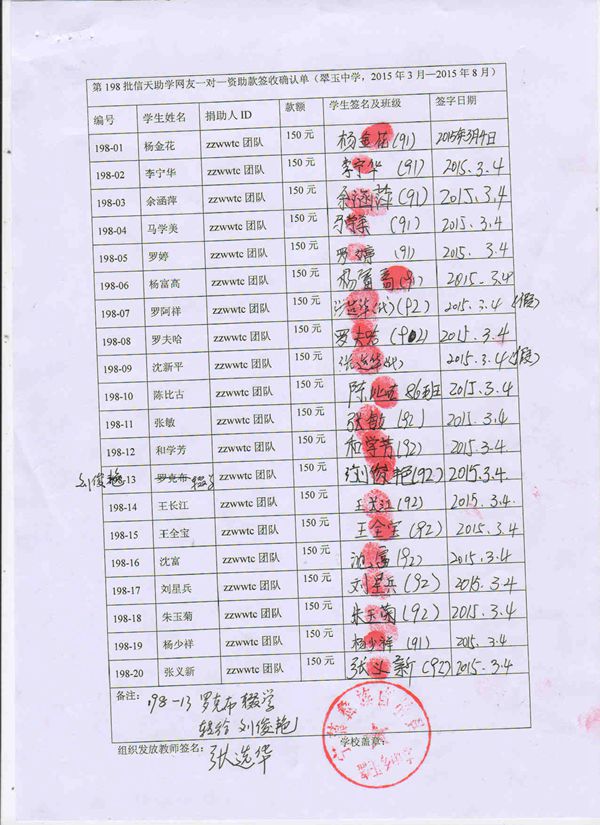 第 198 批信天助学网友一对一资助款签收确认单（翠玉中学，2015 年 3 月—2015 年 8 月）
编号 学生姓名 捐助人 ID 款额 学生签名及班级 签字日期
198-01 杨金花 zzwwtc 团队 150 元 杨金花（91） 2015年3月4日
198-02 李宁华 zzwwtc 团队 150 元 李宁华（91） 2015.3.4
198-03 余涵萍 zzwwtc 团队 150 元 余涵萍（91） 2015.3.4
198-04 马学美 zzwwtc 团队 150 元 （91） 2015.3.4
198-05 罗婷 zzwwtc 团队 150 元 罗婷（91） 2015.3.4
198-06 杨富高 zzwwtc 团队 150 元 杨富高（91） 2015.3.4
198-07 罗阿祥 zzwwtc 团队 150 元 张选华（代）（92） 2015.3.4（假）
198-08 罗夫哈 zzwwtc 团队 150 元 罗夫哈（92） 2015.3.4
198-09 沈新平 zzwwtc 团队 150 元 张选华（代） 2015.3.4（假）
198-10 陈比古 zzwwtc 团队 150 元 陈比古 86班 2015.3.4
198-11 张敏 zzwwtc 团队 150 元 张敏（92） 2015.3.4
198-12 和学芳 zzwwtc 团队 150 元 和学芳（92） 2015.3.4
刘俊艳 198-13 罗克布 辍学 zzwwtc 团队 150 元 刘俊艳（92） 2015.3.4.
198-14 王长江 zzwwtc 团队 150 元 王长江（92） 2015.3.4.
198-15 王全宝 zzwwtc 团队 150 元 王全宝（92） 2015.3.4
198-16 沈富 zzwwtc 团队 150 元 沈富（92） 2015.3.4
198-17 刘星兵 zzwwtc 团队 150 元 刘星兵（92） 2015.3.4
198-18 朱玉菊 zzwwtc 团队 150 元 朱玉菊（92） 2015.3.4
198-19 杨少祥 zzwwtc 团队 150 元 杨少祥（91） 2015.3.4
198-20 张义新 zzwwtc 团队 150 元 张义新（92） 2015.3.4
备注： 198-13 罗克布辍学
转给 刘俊艳
组织发放教师签名： 张选华 学校盖章：